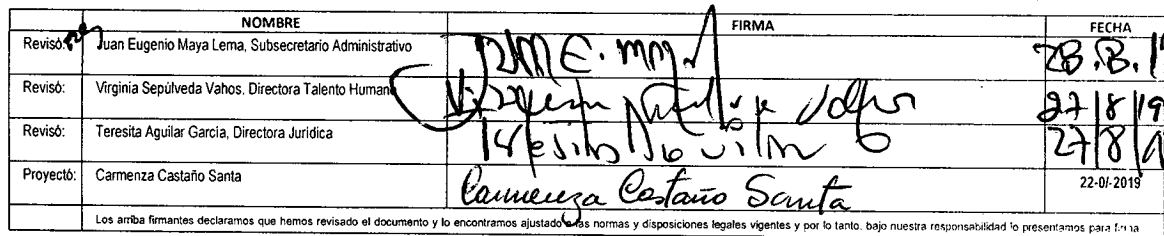 NOMBRE FIRMA FECHA
Revisó: Juan Eugenio Maya Lema, Subsecretario Administrativo
Revisó: Virginia Sepúlveda Vahos. Directora Talento Humano 27/8/19
Revisó: Teresita Aguilar García, Directora Jurídica 27/8/
Proyectó: Carmenza Castaño Santa Carmenza Castaño Santa 22-0/-2019
Los arriba firmantes declaramos que hemos revisado el documento y lo encontramos ajustado a las normas y disposiciones legales vigentes y por lo tanto, bajo nuestra responsabilidad lo presentamos para firma